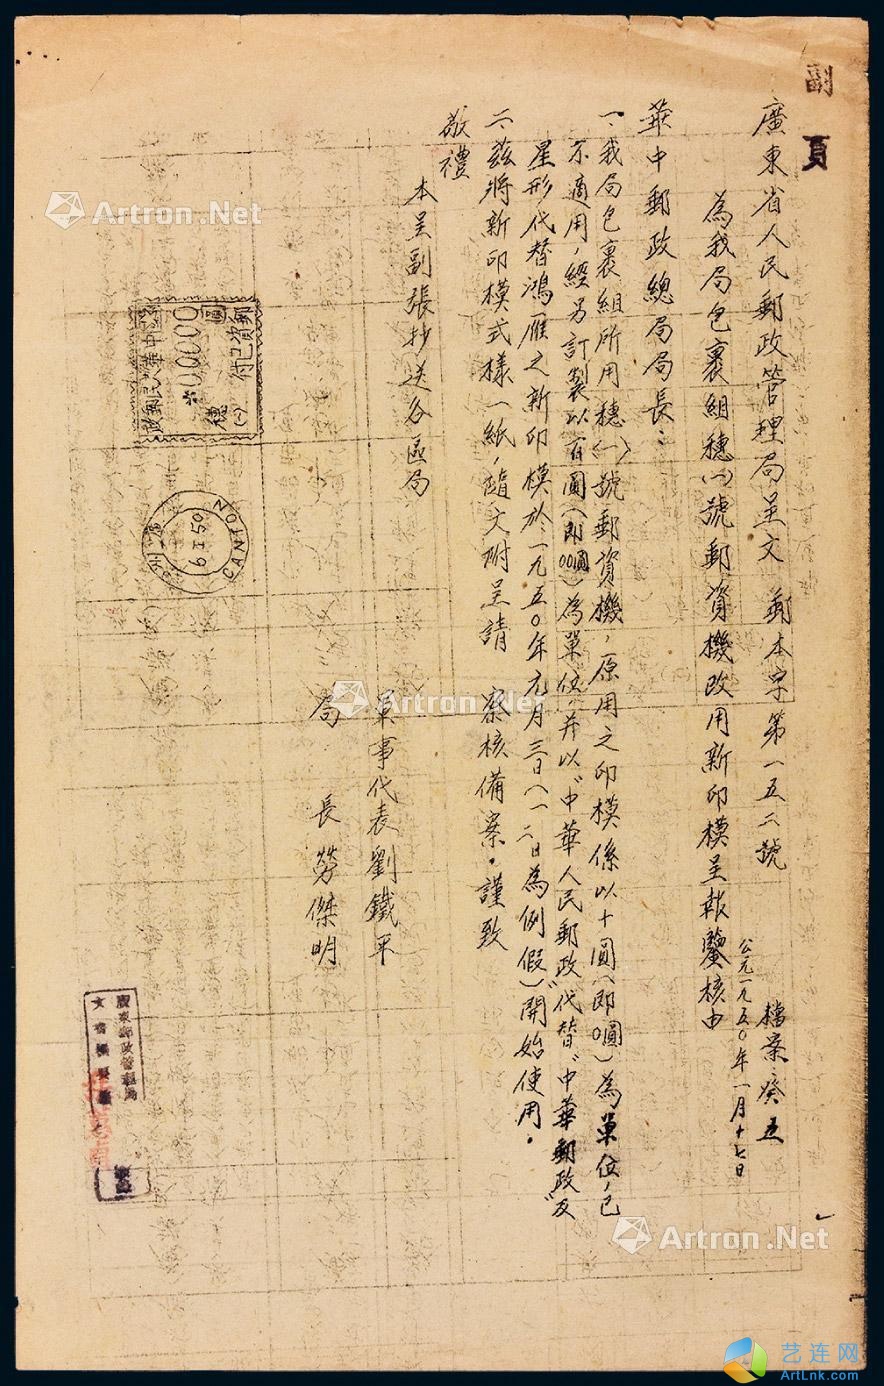 副頁
廣東省人民郵政管理局呈文 郵本字第一五二號 檔案：癸五
公元一九五〇年一月十七日
為我局包裹組穗(一)號郵資機改用新印模呈報鑒核由
華中郵政總局局長：
一、我局包裹組所用穗(一)號郵資機，原用之印模係以十圓(即0圓)為單位，已
不適用，經另訂製以百圓(即00圓)為單位，并以“中華人民郵政”代替“中華郵政”及
星形代替鴻雁之新印模於一九五〇年元月三日(一、二日為例假)開始使用。
二、茲將新印模式樣一紙，隨文附呈請 察核備案。謹致
敬禮
本呈副張抄送各區局
軍事代表劉鐵平
局 長 勞傑明
郵資已付
(一)
穗
圓
00000
中華人民郵政
廣州
6 I 50
CANTON
廣東郵政管理局
Artron.Net
Artron.Net
Artron.Net
Artron.Net
艺连网
ArtLnk.com